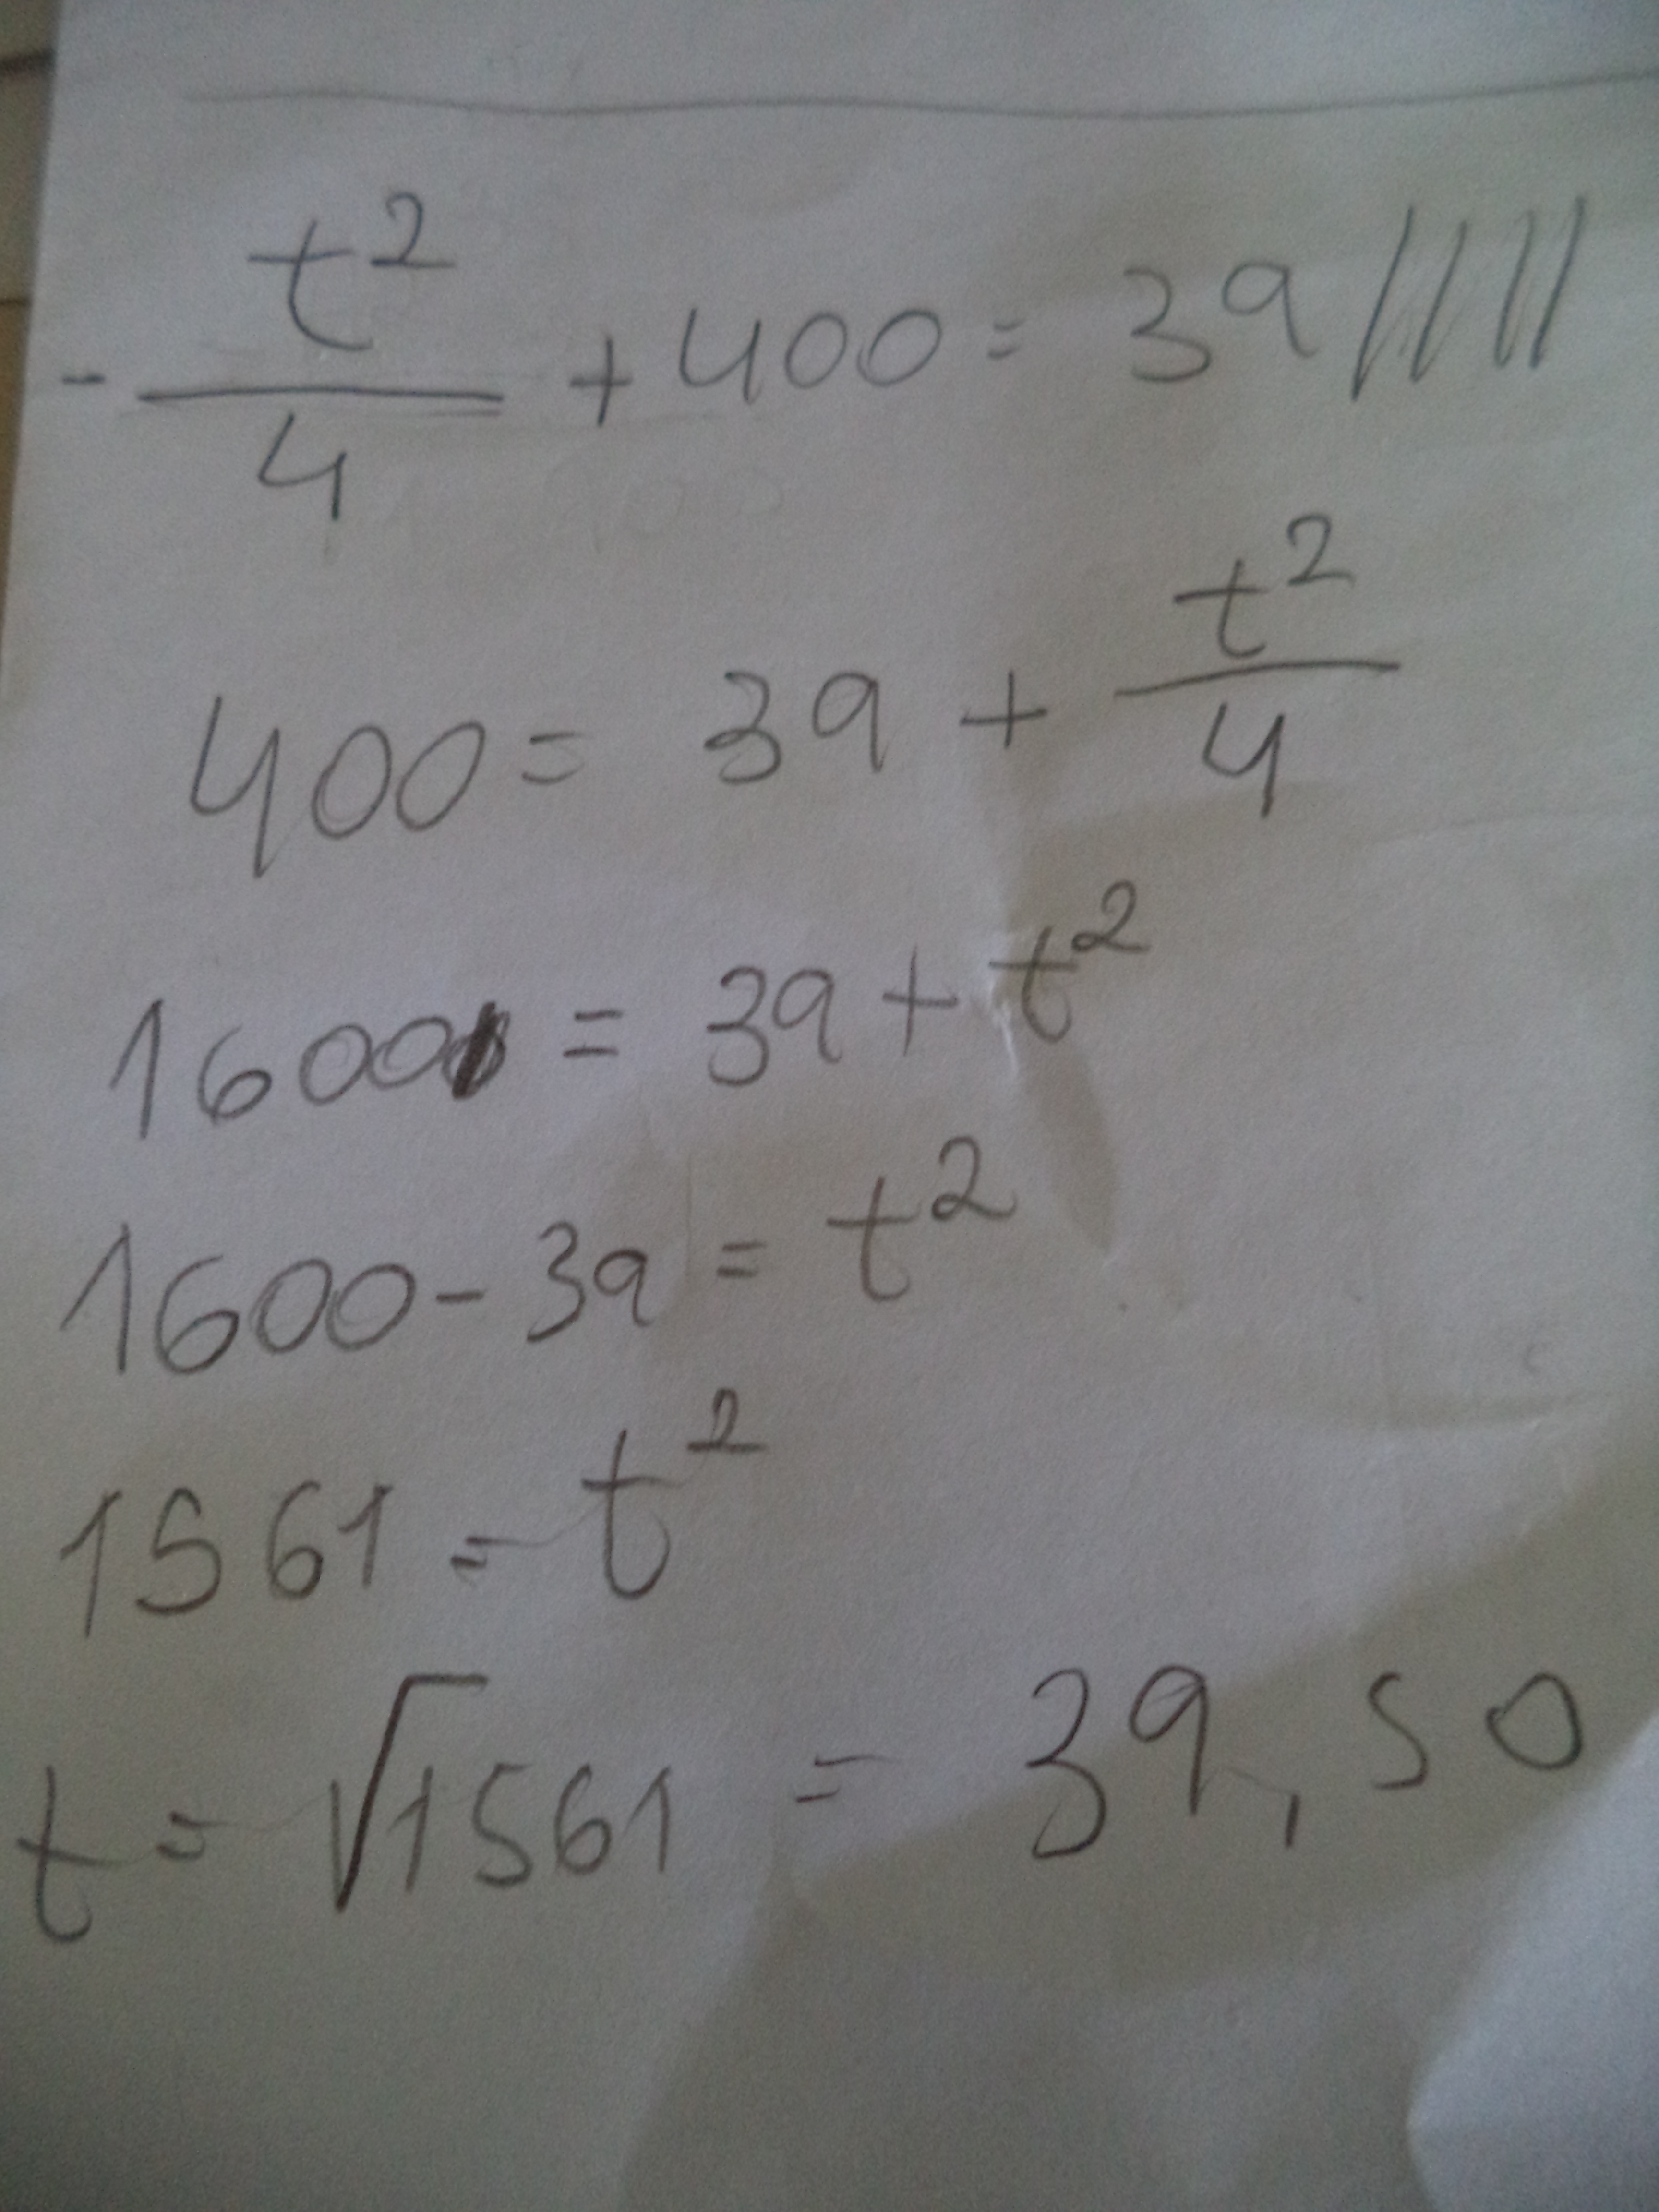 - t²/4 + 400 = 39
400 = 39 + t²/4
1600 = 39 + t²
1600 - 39 = t²
1561 = t²
t = √1561 = 39,50